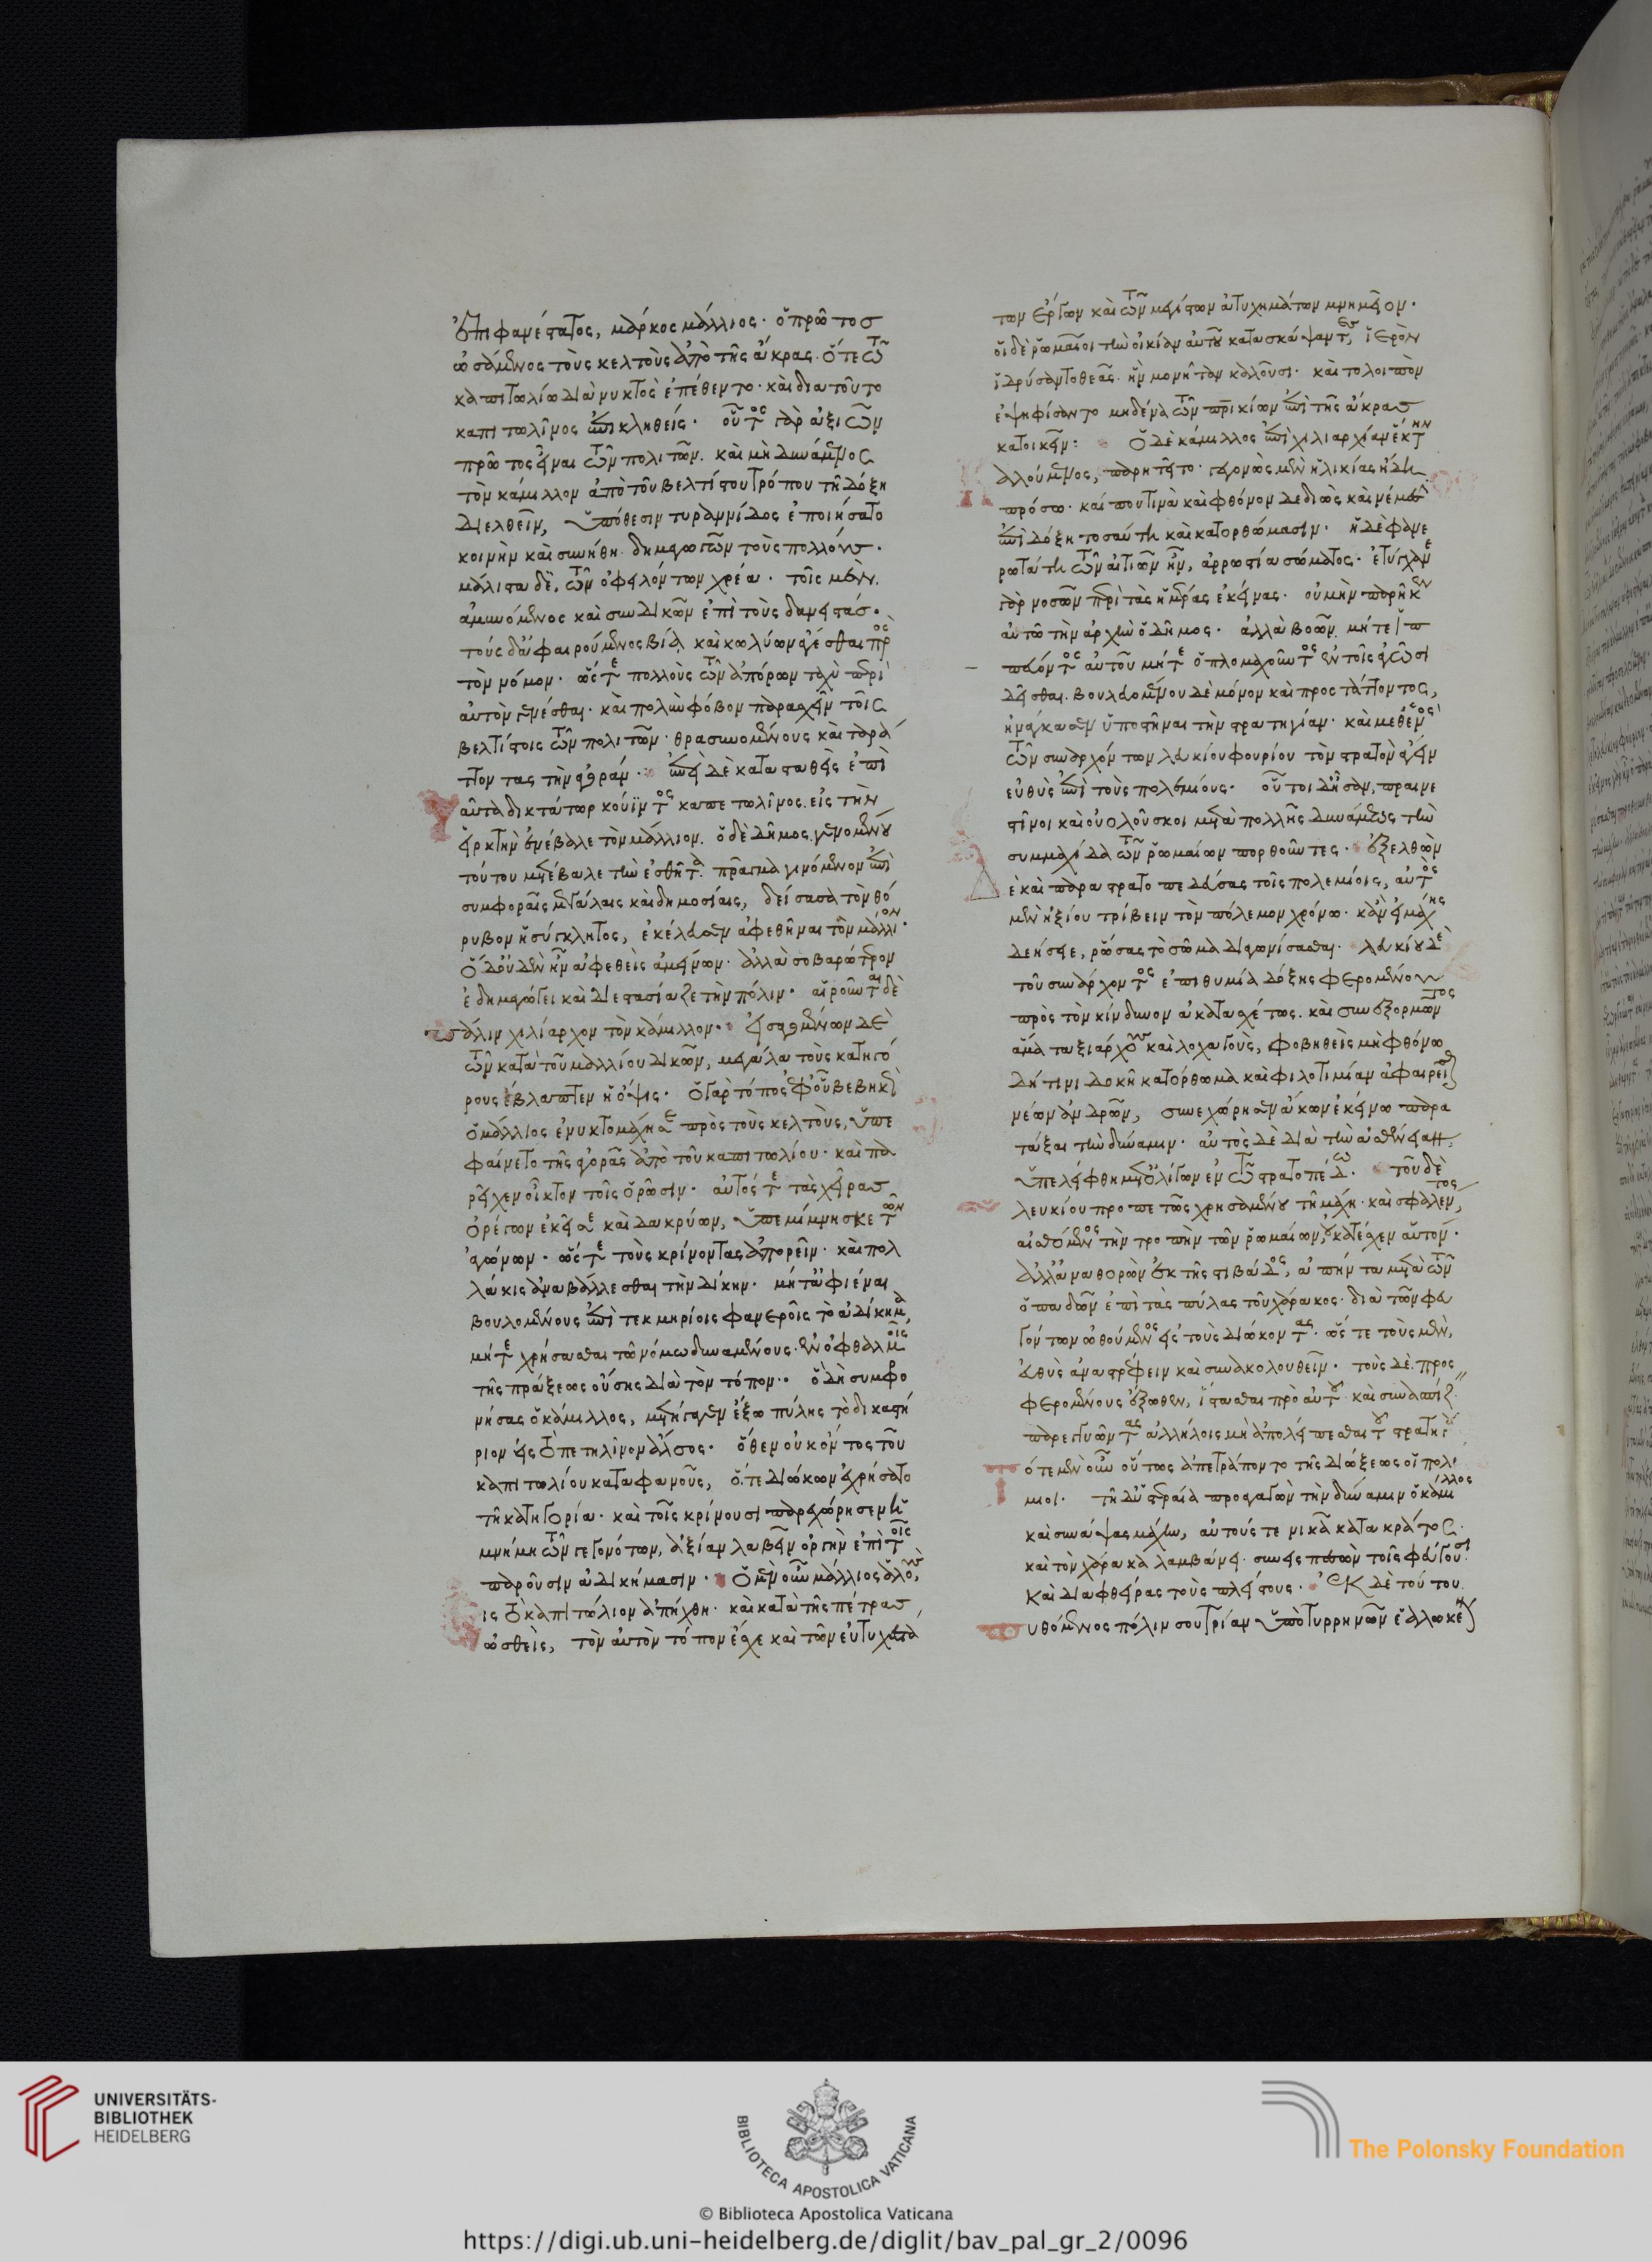 ἐπιφανέστατος, μάρκος μάλλιος· ὁ πρῶτος
ὠσάμενος τοὺς κελτοὺς ἀπὸ τῆς ἄκρας· ὅτε τῶ
καπιτωλίω διὰ νυκτὸς ἐπέθεντο· καὶ διατοῦτο
καπιτωλῖνος ἐπικληθείς· οὗτος γὰρ ἀξιῶν
πρῶτος εἶναι τῶν πολιτῶν· καὶ μὴ δυνάμενος
τὸν κάμιλλον ἀπὸ τοῦ βελτίστου τρόπου τῆ δόξη
διελθεῖν, ὑπόθεσιν τυραννίδος ἐποιήσατο
κοινὴν καὶ συνήθη· δημαγωγῶν τοὺς πολλούς·
μάλιστα δὲ, τῶν ὀφειλόντων χρέα· τοῖς μὲν,
ἀμυνόμενος καὶ συνδικῶν ἐπὶ τοὺς δανειστάς·
τοὺς δ' ἀφαιρούμενος βία καὶ κωλύων ἄγεσθαι πρὸς
τὸν νόμον· ὥστε πολλοὺς τῶν ἀπόρων ταχὺ περὶ
αὐτὸν γενέσθαι· καὶ πολὺν φόβον παρασχεῖν τοῖς
βελτίστοις τῶν πολιτῶν· θρασυνομένους καὶ ταρά
ττοντας τὴν ἀγοράν· ἐπεὶ δὲ κατασταθεὶς ἐπὶ
ταῦτα δικτάτωρ κούϊντος καπετωλῖνος· εἰς τὴν
εἱρκτὴν ἐνέβαλε τὸν μάλλιον· ὁ δὲ δῆμος γενομένου
τούτου μετέβαλε τὴν ἐσθῆτα· πρᾶγμα γινόμενον ἐπὶ
συμφοραῖς μεγάλαις καὶ δημοσίαις, δείσασα τὸν θό
ρυβον ἡ σύγκλητος, ἐκέλευσεν ἀφεθῆναι τὸν μάλλιον·
ὁ δ' οὐδὲν ἦν ἀφεθεὶς ἀμείνων· ἀλλὰ σοβαρώτερον
ἐδημαγώγει καὶ διεστασίαζε τὴν πόλιν· αἱροῦνται δὲ
πάλιν χιλίαρχον τὸν κάμιλλον· εἰσαγομένων δὲ
τῶν κατὰ τοῦ μαλλίου δικῶν, μεγάλα τοὺς κατηγό
ρους ἔβλαπτεν ἡ ὄψις· ὁ γὰρ τόπος ἐφ' οὗ βεβηκὼς
ὁ μάλλιος ἐνυκτομάχησε πρὸς τοὺς κελτοὺς, ὑπε
φαίνετο τῆς ἀγορᾶς ἀπὸ τοῦ καπιτωλίου· καὶ πα
ρεῖχεν οἶκτον τοῖς ὁρῶσιν· αὐτός τε τὰς χεῖρας
ὀρέγων ἐκεῖσε καὶ δακρύων, ὑπεμίμνησκε τῶν
ἀγώνων· ὥστε τοὺς κρίνοντας ἀπορεῖν· καὶ πολ
λάκις ἀναβάλλεσθαι τὴν δίκην· μήτ' ἀφιέναι
βουλομένους ἐπὶ τεκμηρίοις φανεροῖς τὸ ἀδίκημα,
μήτε χρήσασθαι τῶ νόμω δυναμένους· ἐν ὀφθαλμοῖς
τῆς πράξεως οὔσης διὰ τὸν τόπον· ὃ δὴ συμφρο
νήσας ὁ κάμιλλος, μετήγαγεν ἔξω πύλης τὸ δικαστή
ριον εἰς τὸ πετηλῖνον ἄλσος· ὅθεν οὐκ ὄντος τοῦ
καπιτωλίου καταφανοῦς, ὅ,τε διώκων ἐχρήσατο
τῆ κατηγορία· καὶ τοῖς κρίνουσι παρεχώρησεν ἡ
μνήμη τῶν γεγονότων, ἀξίαν λαβεῖν ὀργὴν ἐπὶ τοῖς
παροῦσιν ἀδικήμασιν· ὁ μὲν οὖν μάλλιος ἁλοὺς
εἰς τὸ καπιτώλιον ἀπήχθη· καὶ κατὰ τῆς πέτρας
ὠσθεὶς, τὸν αὐτὸν τόπον ἔσχε καὶ τῶν εὐτυχεστά
των ἔργων καὶ τῶν μεγίστων ἀτυχημάτων μνημεῖον·
οἱ δὲ ῥωμαῖοι τὴν οἰκίαν αὐτοῦ κατασκάψαντες, ἱερὸν
ἱδρύσαντο θεᾶς· ἣν μονήταν καλοῦσι· καὶ τολοιπὸν
ἐψηφίσαντο μηδένα τῶν πατρικίων ἐπὶ τῆς ἄκρας
κατοικεῖν: ὁ δὲ κάμιλλος ἐπὶ χιλιαρχίαν ἕκτην
καλούμενος, παρῃτεῖτο· γεγονὼς μὲν ἡλικίας ἤδη
πρόσω· καί που τινὰ καὶ φθόνον δεδιὼς καὶ νέμεσιν
ἐπὶ δόξη τοσαύτη καὶ κατορθώμασιν· ἡ δὲ φανε
ρωτάτη τῶν αἰτιῶν ἦν, ἀρρωστία σώματος· ἐτύγχανε
γὰρ νοσῶν περὶ τὰς ἡμέρας ἐκείνας· οὐ μὴν παρῆκεν
αὐτῶ τὴν ἀρχὴν ὁ δῆμος· ἀλλὰ βοῶν μήτε ἱπ
πεύοντος αὐτοῦ μήτε ὁπλομαχοῦντος ἐν τοῖς ἀγῶσι
δεῖσθαι· βουλευομένου δὲ μόνον καὶ προστάττοντος,
ἠνάγκασεν ὑποστῆναι τὴν στρατηγίαν· καὶ μεθ' ἑνὸς
τῶν συναρχόντων λευκίου φουρίου τὸν στρατὸν ἄγειν
εὐθὺς ἐπὶ τοὺς πολεμίους· οὗτοι δ' ἦσαν, πραινε
στῖνοι καὶ οὐολοῦσκοι μετὰ πολλῆς δυνάμεως τὴν
συμμαχίδα τῶν ῥωμαίων πορθοῦντες· ἐξελθὼν
δὲ καὶ παραστρατοπεδεύσας τοῖς πολεμίοις, αὐτὸς
μὲν ἠξίου τρίβειν τὸν πόλεμον χρόνω· κἂν εἰ μάχης
δεήσειε, ῥώσας τὸ σῶμα διαγωνίσασθαι· λευκίου δὲ
τοῦ συνάρχοντος ἐπιθυμία δόξης φερομένου
πρὸς τὸν κίνδυνον ἀκατασχέτως· καὶ συνεξορμῶντος
ἅμα ταξιάρχους καὶ λοχαγοὺς, φοβηθεὶς μὴ φθόνω
δή τινι δοκῆ κατόρθωμα καὶ φιλοτιμίαν ἀφαιρεῖσθαι
νέων ἀνδρῶν, συνεχώρησεν ἄκων ἐκείνω παρα
τάξαι τὴν δύναμιν· αὐτὸς δὲ διὰ τὴν ἀσθένειαν,
ὑπελείφθη μετ' ὀλίγων ἐν τῶ στρατοπέδω· τοῦ δὲ
λευκίου προπετῶς χρησαμένου τῆ μάχη· καὶ σφαλέντος,
αἰσθόμενος τὴν τροπὴν τῶν ῥωμαίων, οὐ κατέσχεν αὑτόν·
ἀλλ' ἀναθορὼν ἐκ τῆς στιβάδος, ἀπήντα μετὰ τῶν
ὀπαδῶν ἐπὶ τὰς πύλας τοῦ χάρακος· διὰ τῶν φευ
γόντων ὠθούμενος εἰς τοὺς διώκοντας· ὥστε τοὺς μὲν,
εὐθὺς ἀναστρέφειν καὶ συνακολουθεῖν· τοὺς δὲ προς
φερομένους ἔξωθεν, ἵστασθαι πρὸ αὐτοῦ καὶ συνασπίζειν
παρεγγυῶντας ἀλλήλοις μὴ ἀπολείπεσθαι τοῦ στρατηγοῦ
τότε μὲν οὖν οὕτως ἀπετράποντο τῆς διώξεως οἱ πολέ
μιοι· τῆ δ' ὑστεραία προαγαγὼν τὴν δύναμιν ὁ κάμιλλος
καὶ συνάψας μάχην, αὐτούς τε νικᾶ κατακράτος·
καὶ τὸν χάρακα λαμβάνει· συνεισπεσὼν τοῖς φεύγουσι·
καὶ διαφθείρας τοὺς πλείστους· ἐκ δὲ τούτου
πυθόμενος πόλιν σουτρίαν ὑπὸ τυρρηνῶν ἑαλωκέναι
UNIVERSITÄTS-
BIBLIOTHEK
HEIDELBERG
BIBLIOTECA APOSTOLICA VATICANA
The Polonsky Foundation
© Biblioteca Apostolica Vaticana
https://digi.ub.uni-heidelberg.de/diglit/bav_pal_gr_2/0096